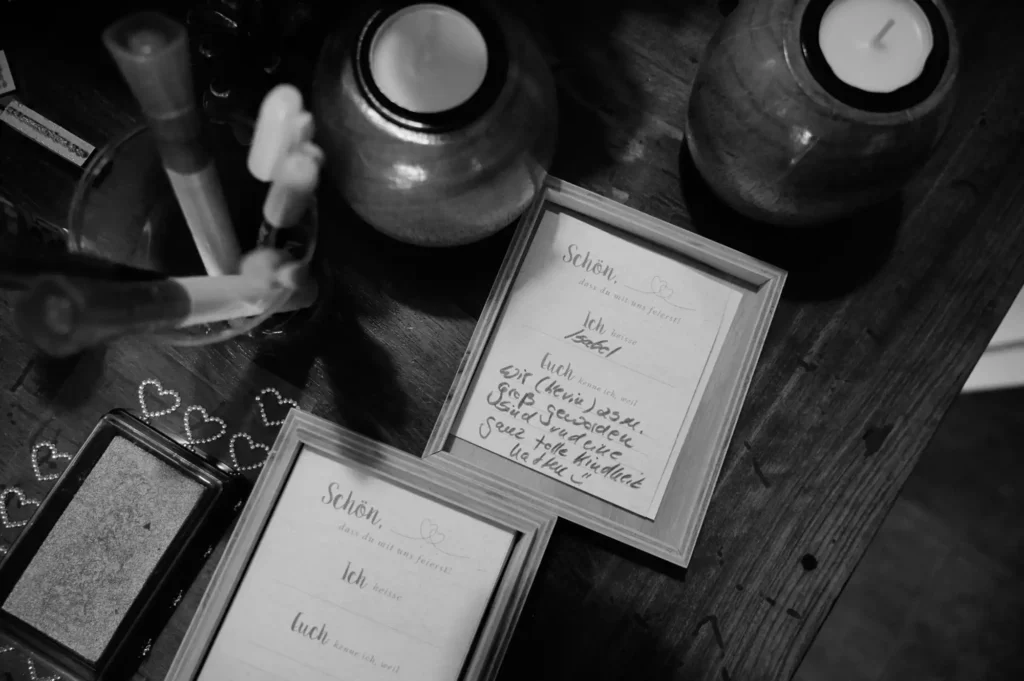 Schön,
dass du mit uns feierst!
Ich heisse
Isabel
Euch kenne ich, weil
wir (Kevin) zus.
groß geworden
sind und eine
ganz tolle Kindheit
hatten
Schön,
dass du mit uns feierst!
Ich heisse
Euch kenne ich, weil